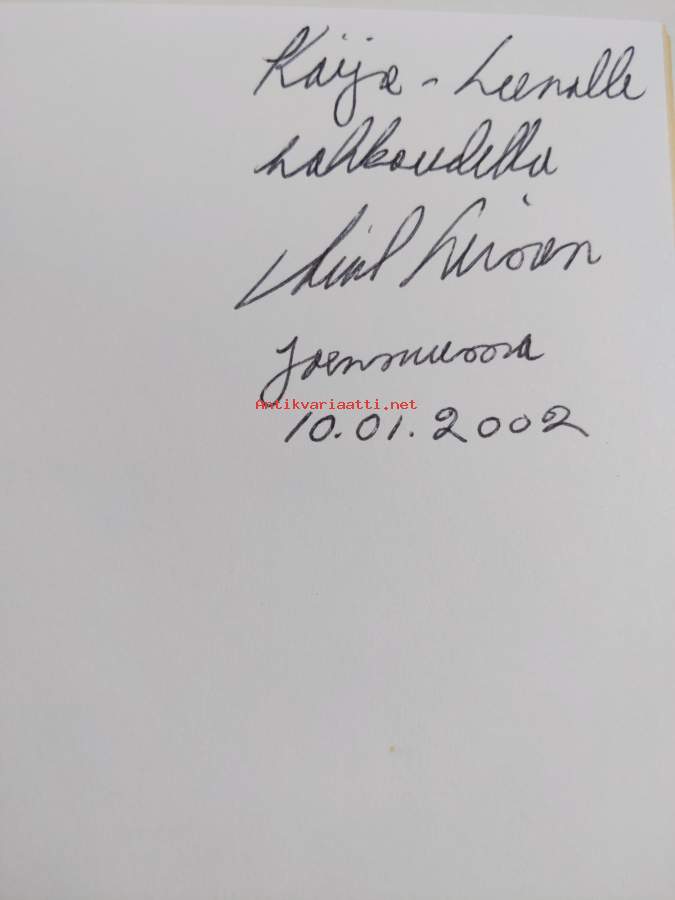 Kaija-Leenalle
rakkaudella
Joensuussa
Antikvariaatti.net
10.01.2002